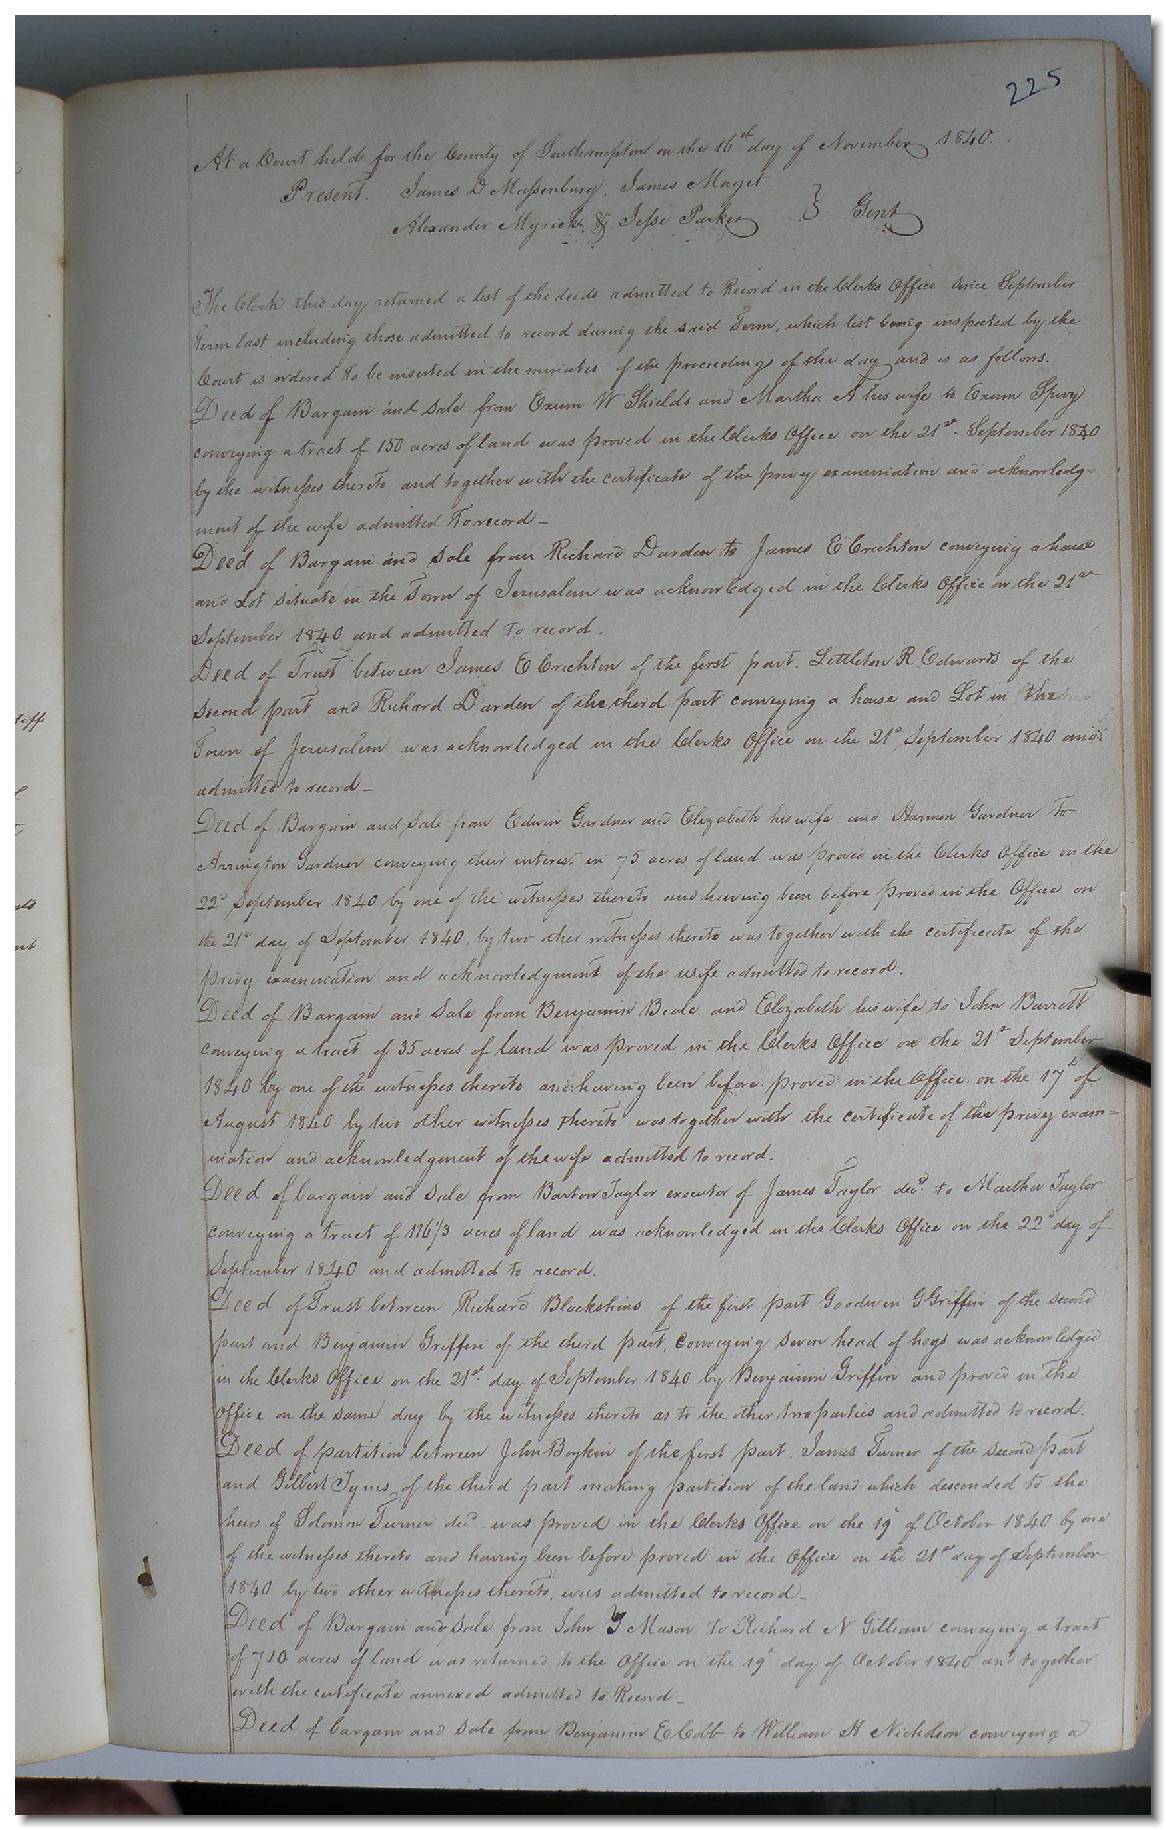 225
At a Court held for the County of Southampton on the 16th day of November 1840.
Present. James D Massenburg. James Maget
Alexander Myrick & Jesse Parker } Gent
The Clerk this day returned a list of the deeds admitted to Record in the Clerks Office since September
Term last including those admitted to record during the said Term, which list being inspected by the
Court is ordered to be inserted in the minutes of the proceedings of the day and is as follows.
Deed of Bargain and Sale from Exum W Shields and Martha A his wife to Exum Spivy
conveying a tract of 150 acres of land was proved in the Clerks Office on the 21st September 1840
by the witnesses thereto and together with the certificate of the privy examination and acknowledg-
ment of the wife admitted to record -
Deed of Bargain and Sale from Richard Darden to James E Crichton conveying a house
and Lot situate in the Town of Jerusalem was acknowledged in the Clerks Office on the 21st
September 1840 and admitted to record.
Deed of Trust between James E Crichton of the first part. Littleton R Edwards of the
second part and Richard Darden of the third part conveying a house and Lot in the
Town of Jerusalem was acknowledged in the Clerks Office on the 21st September 1840 and
admitted to record -
Deed of Bargain and Sale from Edwin Gardner and Elizabeth his wife and Harmon Gardner to
Arrington Gardner conveying their interest in 75 acres of land was proved in the Clerks Office on the
22d September 1840 by one of the witnesses thereto and having been before proved in the Office on
the 21st day of September 1840, by two other witnesses thereto was together with the certificate of the
privy examination and acknowledgment of the wife admitted to record.
Deed of Bargain and Sale from Benjamin Beale and Elizabeth his wife to John Barrett
conveying a tract of 35 acres of land was proved in the Clerks Office on the 21st September
1840 by one of the witnesses thereto and having been before proved in the Office on the 17th of
August 1840 by two other witnesses thereto was together with the certificate of the privy exam=
ination and acknowledgment of the wife admitted to record.
Deed of bargain and Sale from Barton Taylor executor of James Taylor decd. to Martha Taylor
conveying a tract of 116 1/3 acres of land was acknowledged in the Clerks Office on the 22d day of
September 1840 and admitted to record.
Deed of Trust between Richard Blackshins of the first part Goodwin G Griffin of the second
part and Benjamin Griffin of the third part, conveying seven head of hogs was acknowledged
in the Clerks Office on the 21st day of September 1840 by Benjamin Griffin and proved in the
Office on the same day by the witnesses thereto as to the other two parties and admitted to record.
Deed of partition between John Boykin of the first part. James Turner of the second part
and Gilbert Tynes of the third part making partition of the land which descended to the
heirs of Solomon Turner decd was proved in the Clerks Office on the 19th of October 1840 by one
of the witnesses thereto and having been before proved in the Office on the 21st day of September
1840 by two other witnesses thereto, was admitted to record -
Deed of Bargain and Sale from John Y Mason to Richard N Gilliam conveying a tract
of 710 acres of land was returned to the Office on the 19th day of October 1840 and together
with the certificate annexed admitted to Record -
Deed of bargain and Sale from Benjamin E Cobb to William H Nicholson conveying a